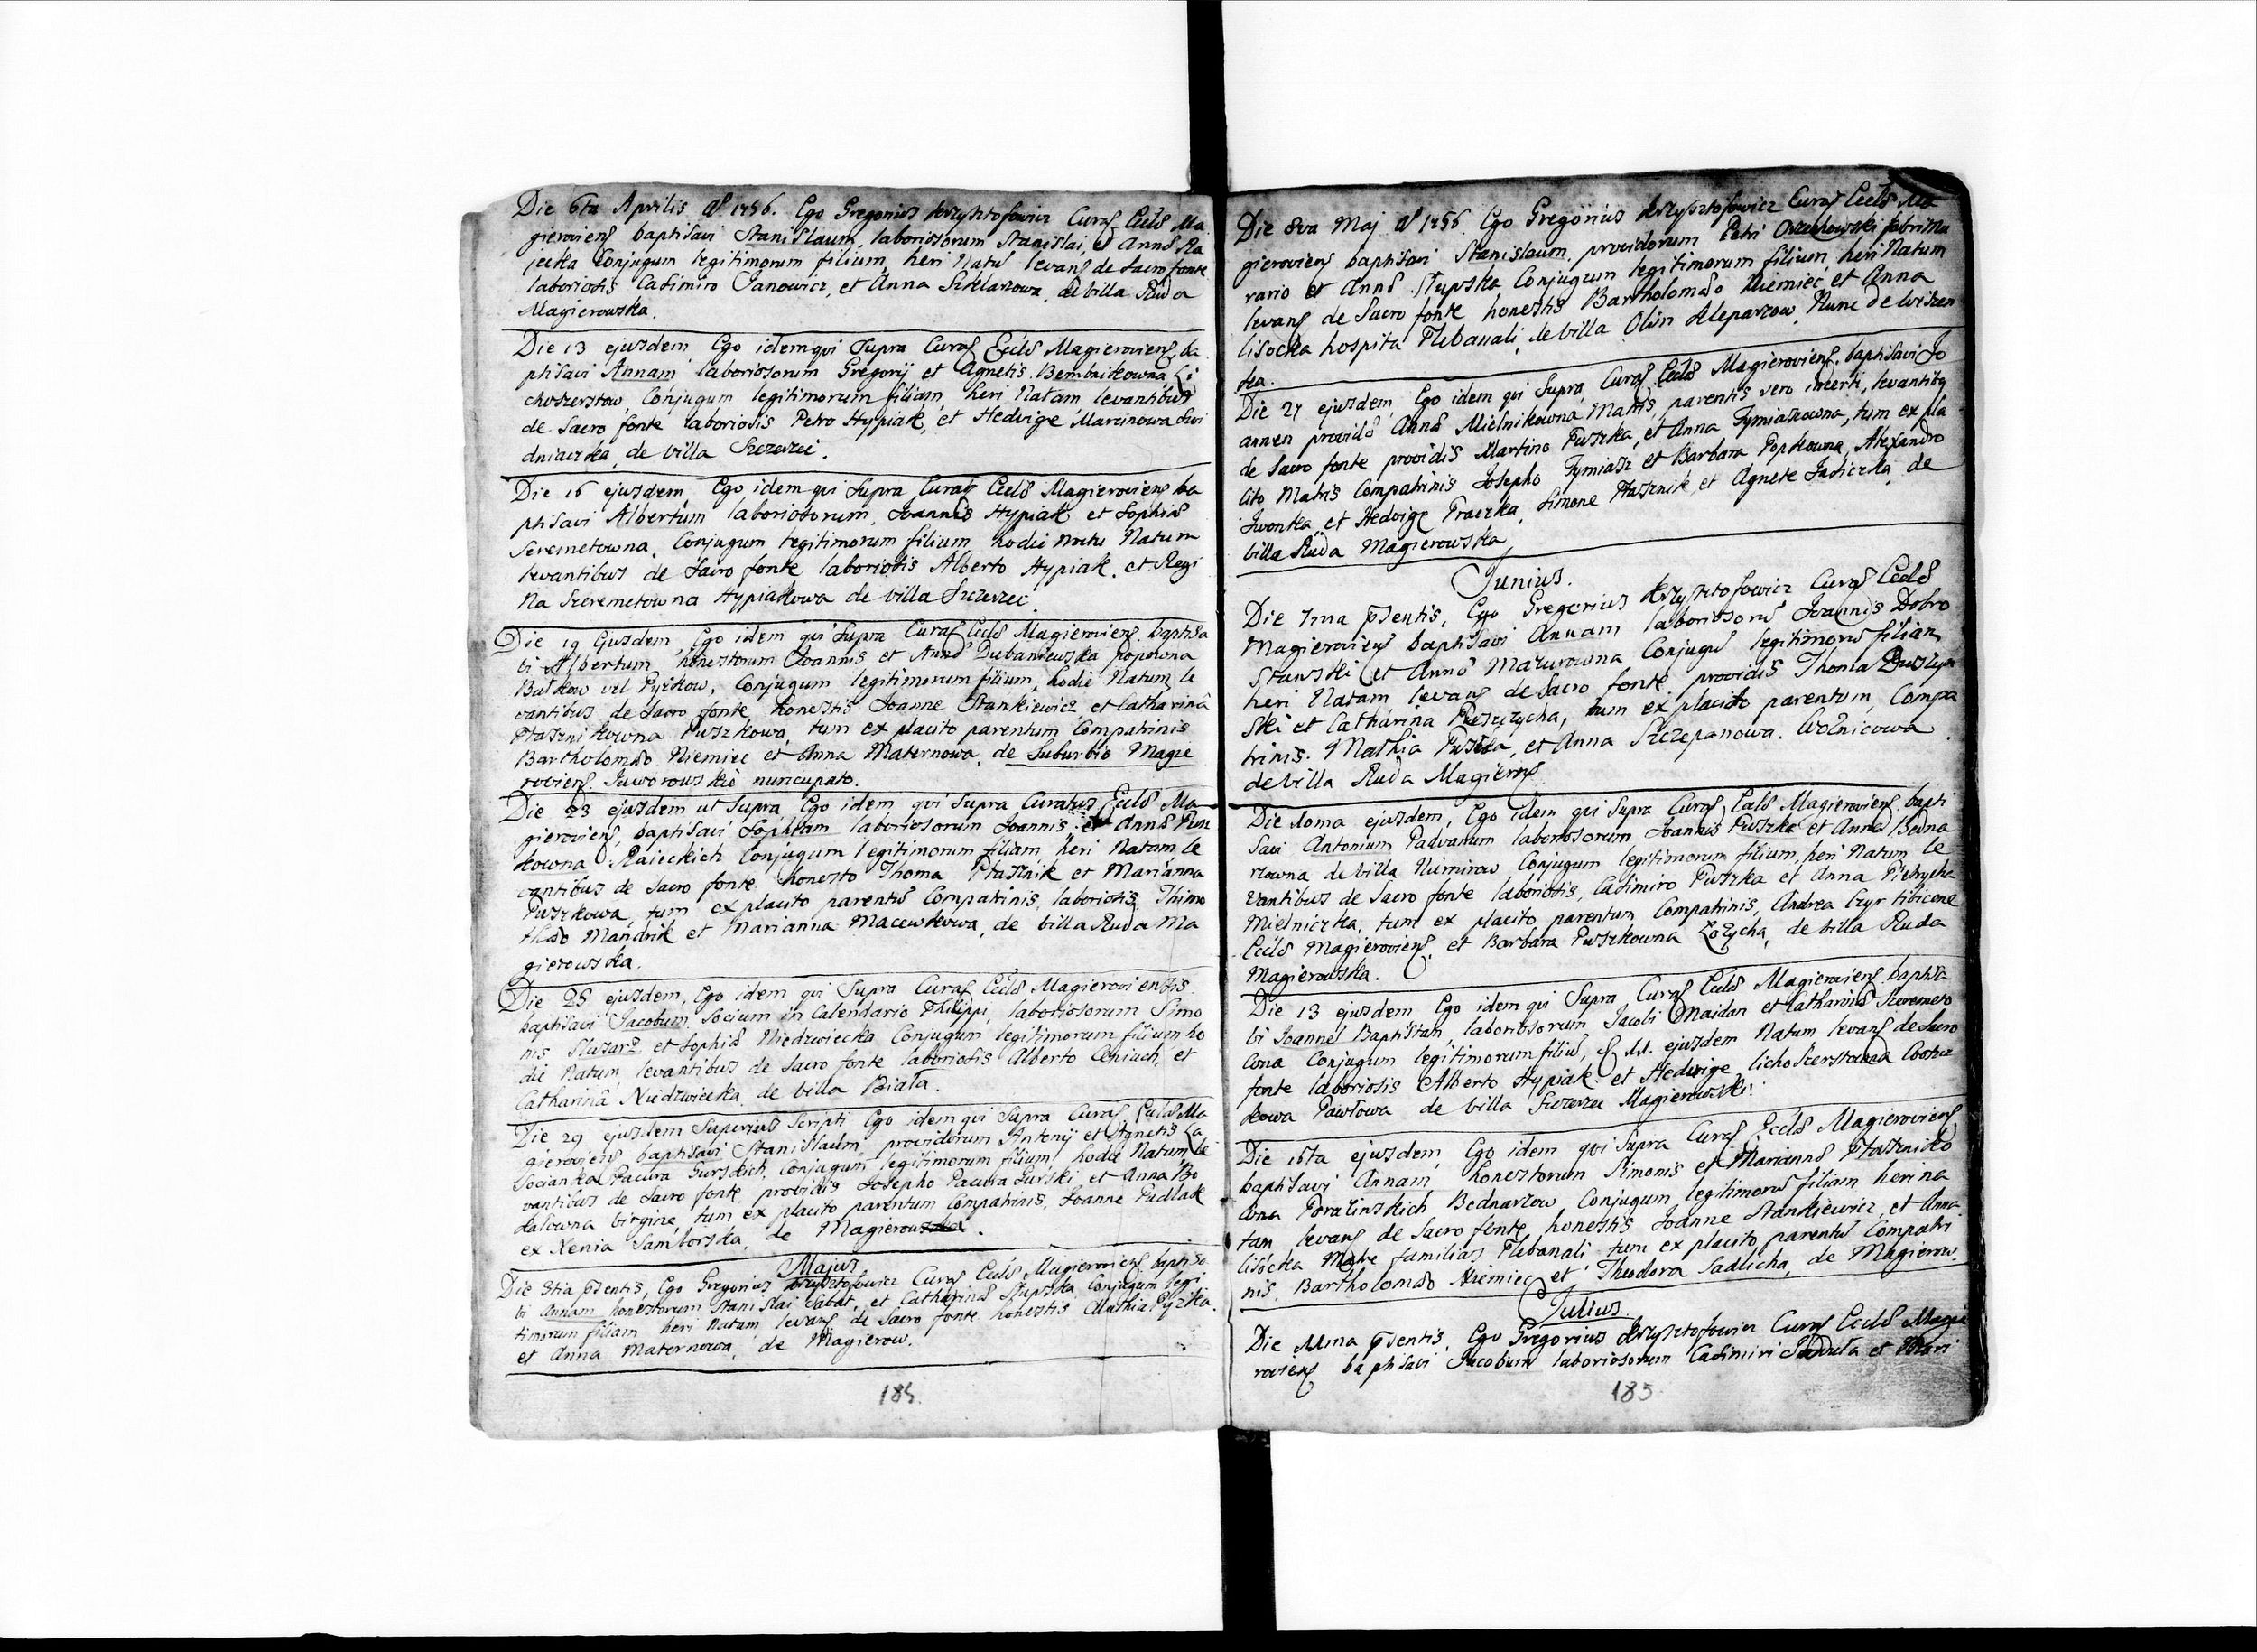 Die 6ta Aprilis A 1756. Ego Gregorius Krzysztofowicz Curaꝯ Eccłæ Ma
gierovienꝯ baptisavi Stanislaum, laboriosorum Stanislai et Annæ Ra
jecka Conjugum legitimorum filium, heri Natũ levanꝯ de Sacro fonte
laboriosis Casimiro Janowicz, et Anna Szklarzowa, de villa Ruda
Magierowska.
Die 13 ejusdem, Ego idem qui Supra Curaꝯ Eccłæ Magierovienꝯ ba
ptisavi Annam laboriosorum Gregorij et Agnetis Bembnikowna Li
choszerstow, Conjugum legitimorum filiam, heri Natam, levantibus
de Sacro fonte laboriosis Petro Hypiak, et Hedvige Marcinowa Swi
dniaczka, de villa Szczerzec.
Die 16 ejusdem, Ego idem qui Supra Curaꝯ Eccłæ Magierovienꝯ ba
ptisavi Albertum laboriosorum, Joannis Hypiak et Sophiæ
Seremetowna, Conjugum legitimorum filium hodie noctu Natum
levantibus de Sacro fonte laboriosis Alberto Hypiak, et Regi
na Szeremetowna Hypiakowa de villa Szczerzec.
Die 19 Ejusdem, Ego idem qui Supra Curaꝯ Eccłæ Magierovienꝯ baptisa
vi Albertum, honestorum Joannis et Annæ Dubaniewska popowna
Bułkow vel Pyżkow, Conjugum legitimorum filium, hodie Natum, le
vantibus de Sacro fonte honestis Joanne Stankiewicz et Catharina
Ptasznikowna Puszkowa, tum ex placito parentum Compatrinis
Bartholomæo Niemiec et Anna Maternowa, de Suburbio Magie
rovienꝯ Jaworowskie nuncupato.
Die 23 ejusdem ut Supra Ego idem qui Supra Curatus Eccłæ Ma
gierovienꝯ, baptisavi Sophiam laboriosorum Joannis et Annæ
kowna Raieckich Conjugum legitimorum filiam, heri Natam le
vantibus de Sacro fonte honesto Thoma Ptasznik et Marianna
Puszkowa, tum ex placito parentũ Compatrinis, laboriosis Thimo
thæo Mandrik et Marianna Macewkowa, de villa Ruda Ma
gierowska.
Die 28 ejusdem, Ego idem qui Supra Curaꝯ Eccłæ Magieroviensis
baptisavi Jacobum, Socium in Calendario Philippi, laboriosorum Simo
nis Slusarz et Sophiæ Niedzwiecka Conjugum legitimorum filium ho
die Natum, levantibus de Sacro fonte laboriosis Alberto et
Catharina Niedzwiecka, de villa Biała.
Die 29 ejusdem Superius Scripti Ego idem qui Supra Curaꝯ Eccłæ Ma
gierovienꝯ baptisavi Stanislaum, providorum Antonij et Agnetis La
socianka Pacura Gurskich, Conjugum legitimorum filium, hodie Natum, le
vantibus de Sacro fonte providis Josepho Pacura Gurski, et Anna Bi
dasowna virgine, tum ex placito parentum Compatrinis, Joanne Pudlak
et Xenia Samborska, de Magierow.
Majus
Die 3tia pꝛsentis, Ego Gregorius Krzysztofowicz Curaꝯ Eccłæ Magierovienꝯ baptisa
vi Annam honestorum Stanislai Sabat, et Catharinæ Słupska Conjugum legi
timorum filiam heri Natam, levanꝯ de Sacro fonte honestis Mathia Pyżka
et Anna Maternowa, de Magierow.
184.
Die 8va Maj A 1756. Ego Gregorius Krzysztofowicz Curaꝯ Eccłæ Ma
gierovienꝯ baptisavi Stanislaum, providorum Petri Orzechowski fabri Mu
rario et Annæ Słupska Conjugum legitimorum filium, heri Natum
levanꝯ de Sacro fonte honestis Bartholomæo Niemiec et Anna
Lisocka hospita Plebanali, de villa Olim Kleparzow, Nunc de
ka.
Die 27 ejusdem, Ego idem qui Supra, Curaꝯ Eccłæ Magierovienꝯ baptisavi Jo
annem providæ Annæ Mielnikowna Matris, parentis vero incerti, levantibꝯ
de Sacro fonte providis Martino Puszka, et Anna Tymiaszowna, tum ex pla
cito Matris Compatrinis Josepho Tymiasz et Barbara Popkowna, Alexandro
Iwonka, et Hedvige Praczka, Simone Ptasznik, et Agnete Jasiczka, de
villa Ruda Magierowska.
Junius.
Die 7ma pꝛsentis, Ego Gregorius Krzysztofowicz Curaꝯ Eccłæ
Magierovienꝯ baptisavi Annam laboriosorũ Joannis Dobro
stawski et Annæ Mazurowna Conjugũ legitimorũ filiam
heri Natam, levanꝯ de Sacro fonte providis Thoma Duszyn
ski et Catharina, tum ex placito parentum, Compa
trinis. Mathia Puszka, et Anna Szczepanowa Woźnicowa
de villa Ruda Magierowꝯ
Die 10ma ejusdem, Ego idem qui Supra Curaꝯ Eccłæ Magierovienꝯ bapti
savi Antonium Paduanum laboriosorum Joannis Puszka et Annæ Bedna
rzowna de villa Niemirow Conjugum legitimorum filium, heri Natum le
vantibus de Sacro fonte laboriosis, Casimiro Puszka et Anna Pietrycha
Mielniczka, tum ex placito parentum Compatrinis, Andrea Czyr tibicene
Eccłæ Magierovienꝯ, et Barbara Puszkowna Łozycha, de villa Ruda
Magierowska.
Die 13 ejusdem Ego idem qui Supra Curaꝯ Eccłæ Magierovienꝯ baptisa
vi Joannẽ Baptistam, laboriosorum Jacobi Maidan et Catharinæ Szeremeto
wna Conjugum legitimorum filiũ, ejusdem Natum levanꝯ de Sacro
fonte laboriosis Alberto Hypiak et Hedvige Lichoszerstowna
kowa Pawłowa de villa Szczerzec Magierowski.
Die 16ta ejusdem, Ego idem qui Supra Curaꝯ Eccłæ Magierovienꝯ
baptisavi Annam honestorum Simonis et Mariannæ Ptaszniko
wna Bednarzow Conjugum legitimorũ filiam heri na
tam levanꝯ de Sacro fonte, honestis Joanne Stankiewicz, et Anna
Lisocka Matre familias Plebanali tum ex placito parentũ Compatri
nis, Bartholomæo Niemiec et Theodora Sadlicha, de Magierow.
Julius.
Die pꝛsentis, Ego Gregorius Krzysztofowicz Curaꝯ Eccłæ Magie
rovienꝯ baptisavi Jacobum laboriosorum Casimiri et Mari
185